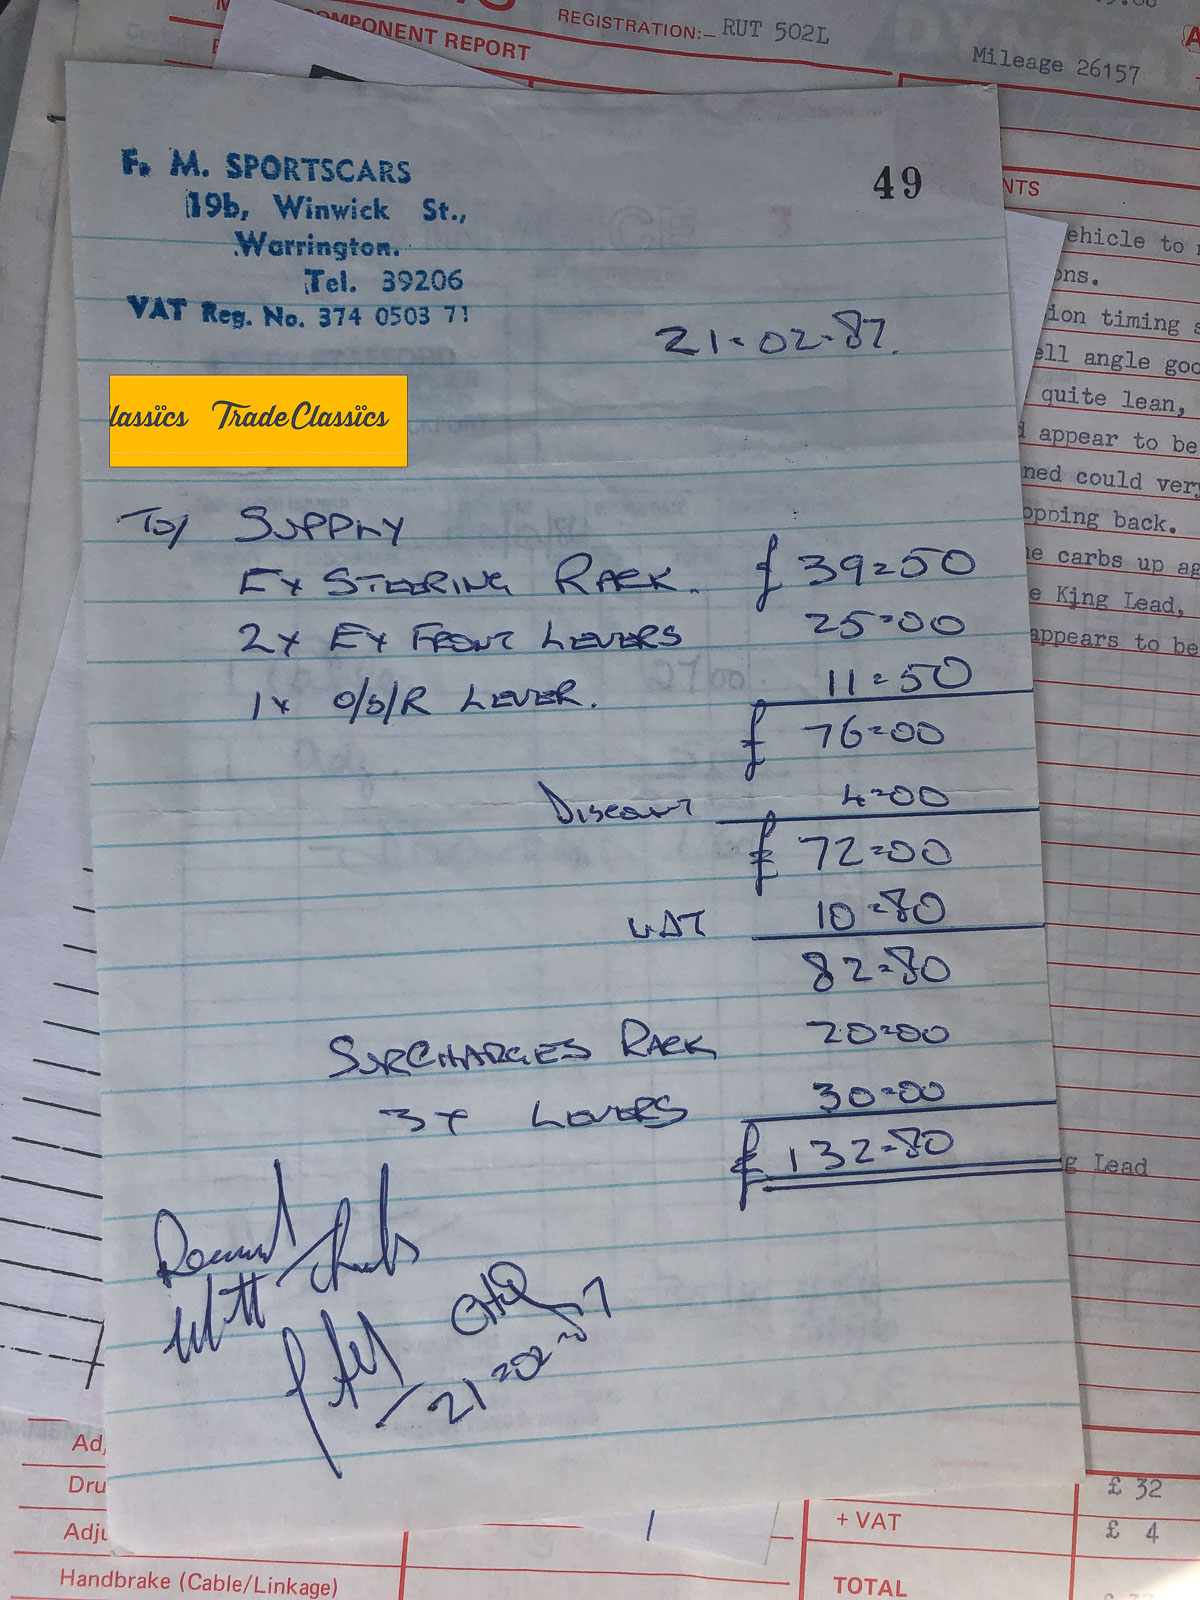 COMPONENT REPORT
REGISTRATION:- RUT 502L
Mileage 26157
F. M. SPORTSCARS
19b, Winwick St.,
Warrington.
Tel. 39206
VAT Reg. No. 374 0503 71
49
21-02-87.
lassïcs TradeClassïcs
To/ SUPPLY
EX STEERING RACK. £ 39=50
2x EX FRONT LEVERS 25=00
1x O/S/R LEVER. 11=50
£ 76=00
Discount 4=00
£ 72=00
VAT 10=80
82=80
SURCHARGES RACK 20=00
3x LEVERS 30=00
£ 132=80
Received
With Thanks
21=02=87
NTS
ehicle to
ons.
ion timing s
ell angle goo
quite lean,
d appear to be
ned could very
opping back.
e carbs up ag
e King Lead,
appears to be
g Lead
Adj
Dru
Adju
Handbrake (Cable/Linkage)
£ 32
+ VAT £ 4
TOTAL